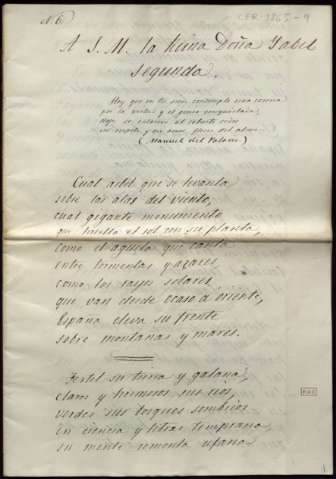 N. 6
CER-1865-9
A S. M. la Reina Doña Isabel
Segunda.
Hoy que en tu sien contemplo una corona
por la virtud y el genio
(Manuel del Palacio.)
Cual adil que se levanta
sobre las alas del viento,
cual gigante monumento
que huella el sol con su planta,
como el aguila que canta
entre tormentas y azares
como los rayos solares
que van desde ocaso a oriente,
España eleva su frente
sobre montañas y mares.
Fertil su tierra y galana,
claros y hermosos sus rios,
verdes sus bosques sombrios
en ciencia y letras temprana,
su mente remonta ufana
1